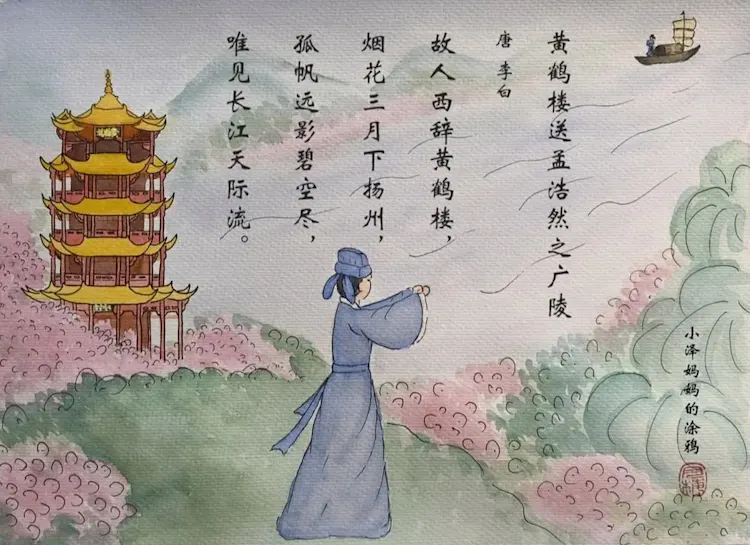 黄鹤楼送孟浩然之广陵
唐 李白
故人西辞黄鹤楼，
烟花三月下扬州，
孤帆远影碧空尽，
唯见长江天际流。
小泽妈妈的涂鸦